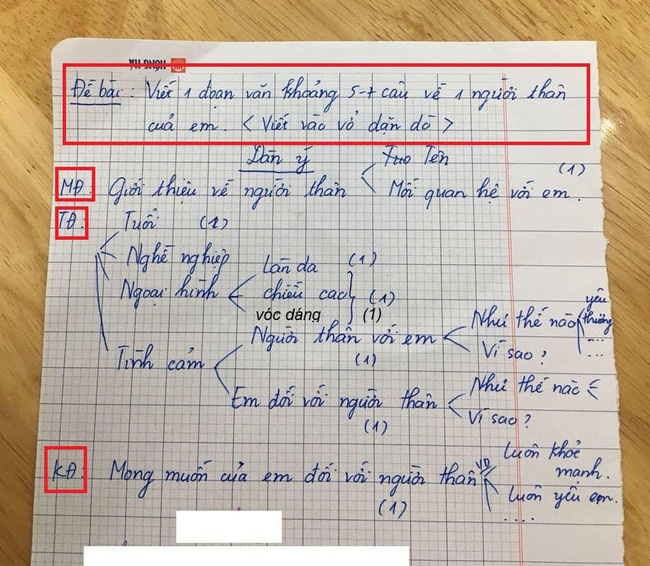 HỒNG HÀ
Đề bài: Viết 1 đoạn văn khoảng 5-7 câu về 1 người thân
của em. < Viết vào vở dặn dò >
Dàn ý
Tên
(1)
MĐ: Giới thiệu về người thân
Mối quan hệ với em.
TĐ:
Tuổi (1)
Nghề nghiệp
Ngoại hình
Làn da (1)
chiều cao (1)
vóc dáng (1)
Tình cảm
Người thân với em
(1)
Như thế nào
yêu
thương
...
Vì sao?
Em đối với người thân
(1)
Như thế nào
Vì sao?
KĐ: Mong muốn của em đối với người thân
(1)
VD
Luôn khoẻ
mạnh.
Luôn yêu em.
....